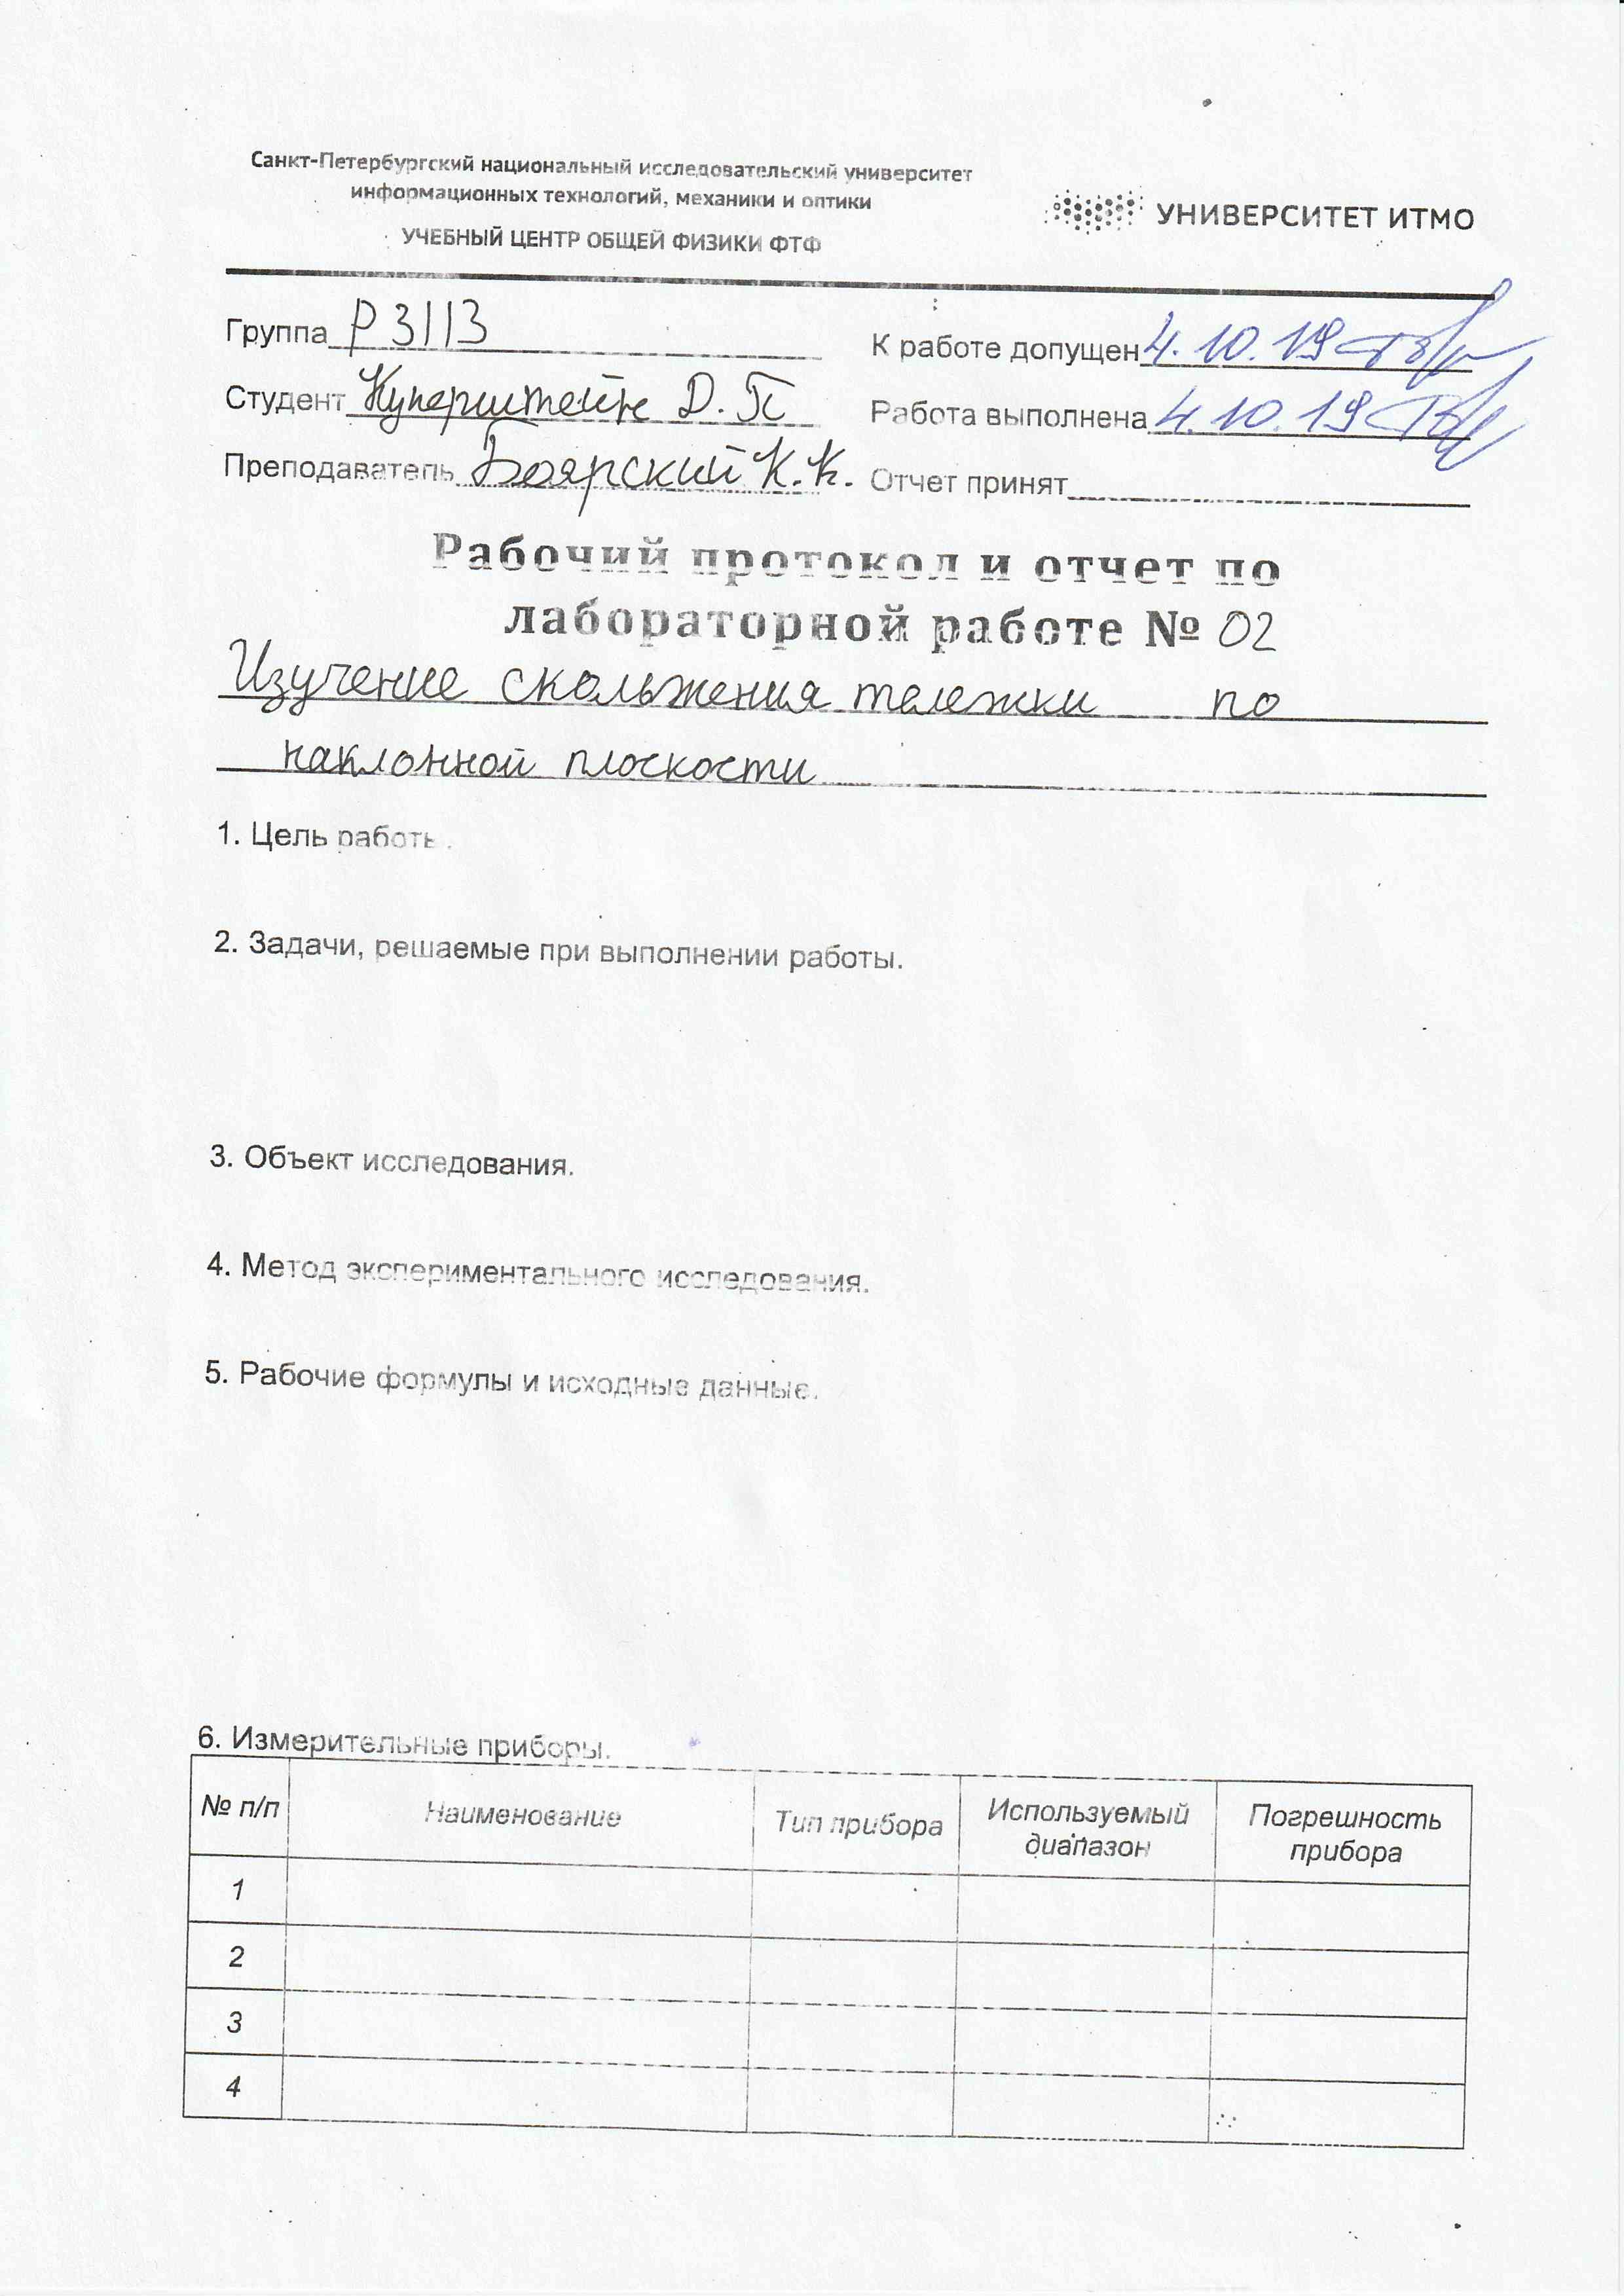 Санкт-Петербургский национальный исследовательский университет
информационных технологий, механики и оптики
УЧЕБНЫЙ ЦЕНТР ОБЩЕЙ ФИЗИКИ ФТФ
УНИВЕРСИТЕТ ИТМО
Группа P3113
К работе допущен 4.10.19
Студент Куперштейн Д.П
Работа выполнена 4.10.19
Преподаватель Боярский К.К.
Отчет принят
Рабочий протокол и отчет по
лабораторной работе № 02
Изучение скольжения тележки по
наклонной плоскости
1. Цель работы.
2. Задачи, решаемые при выполнении работы.
3. Объект исследования.
4. Метод экспериментального исследования.
5. Рабочие формулы и исходные данные.
6. Измерительные приборы.
№ п/п Наименование Тип прибора Используемый диапазон Погрешность прибора
1
2
3
4